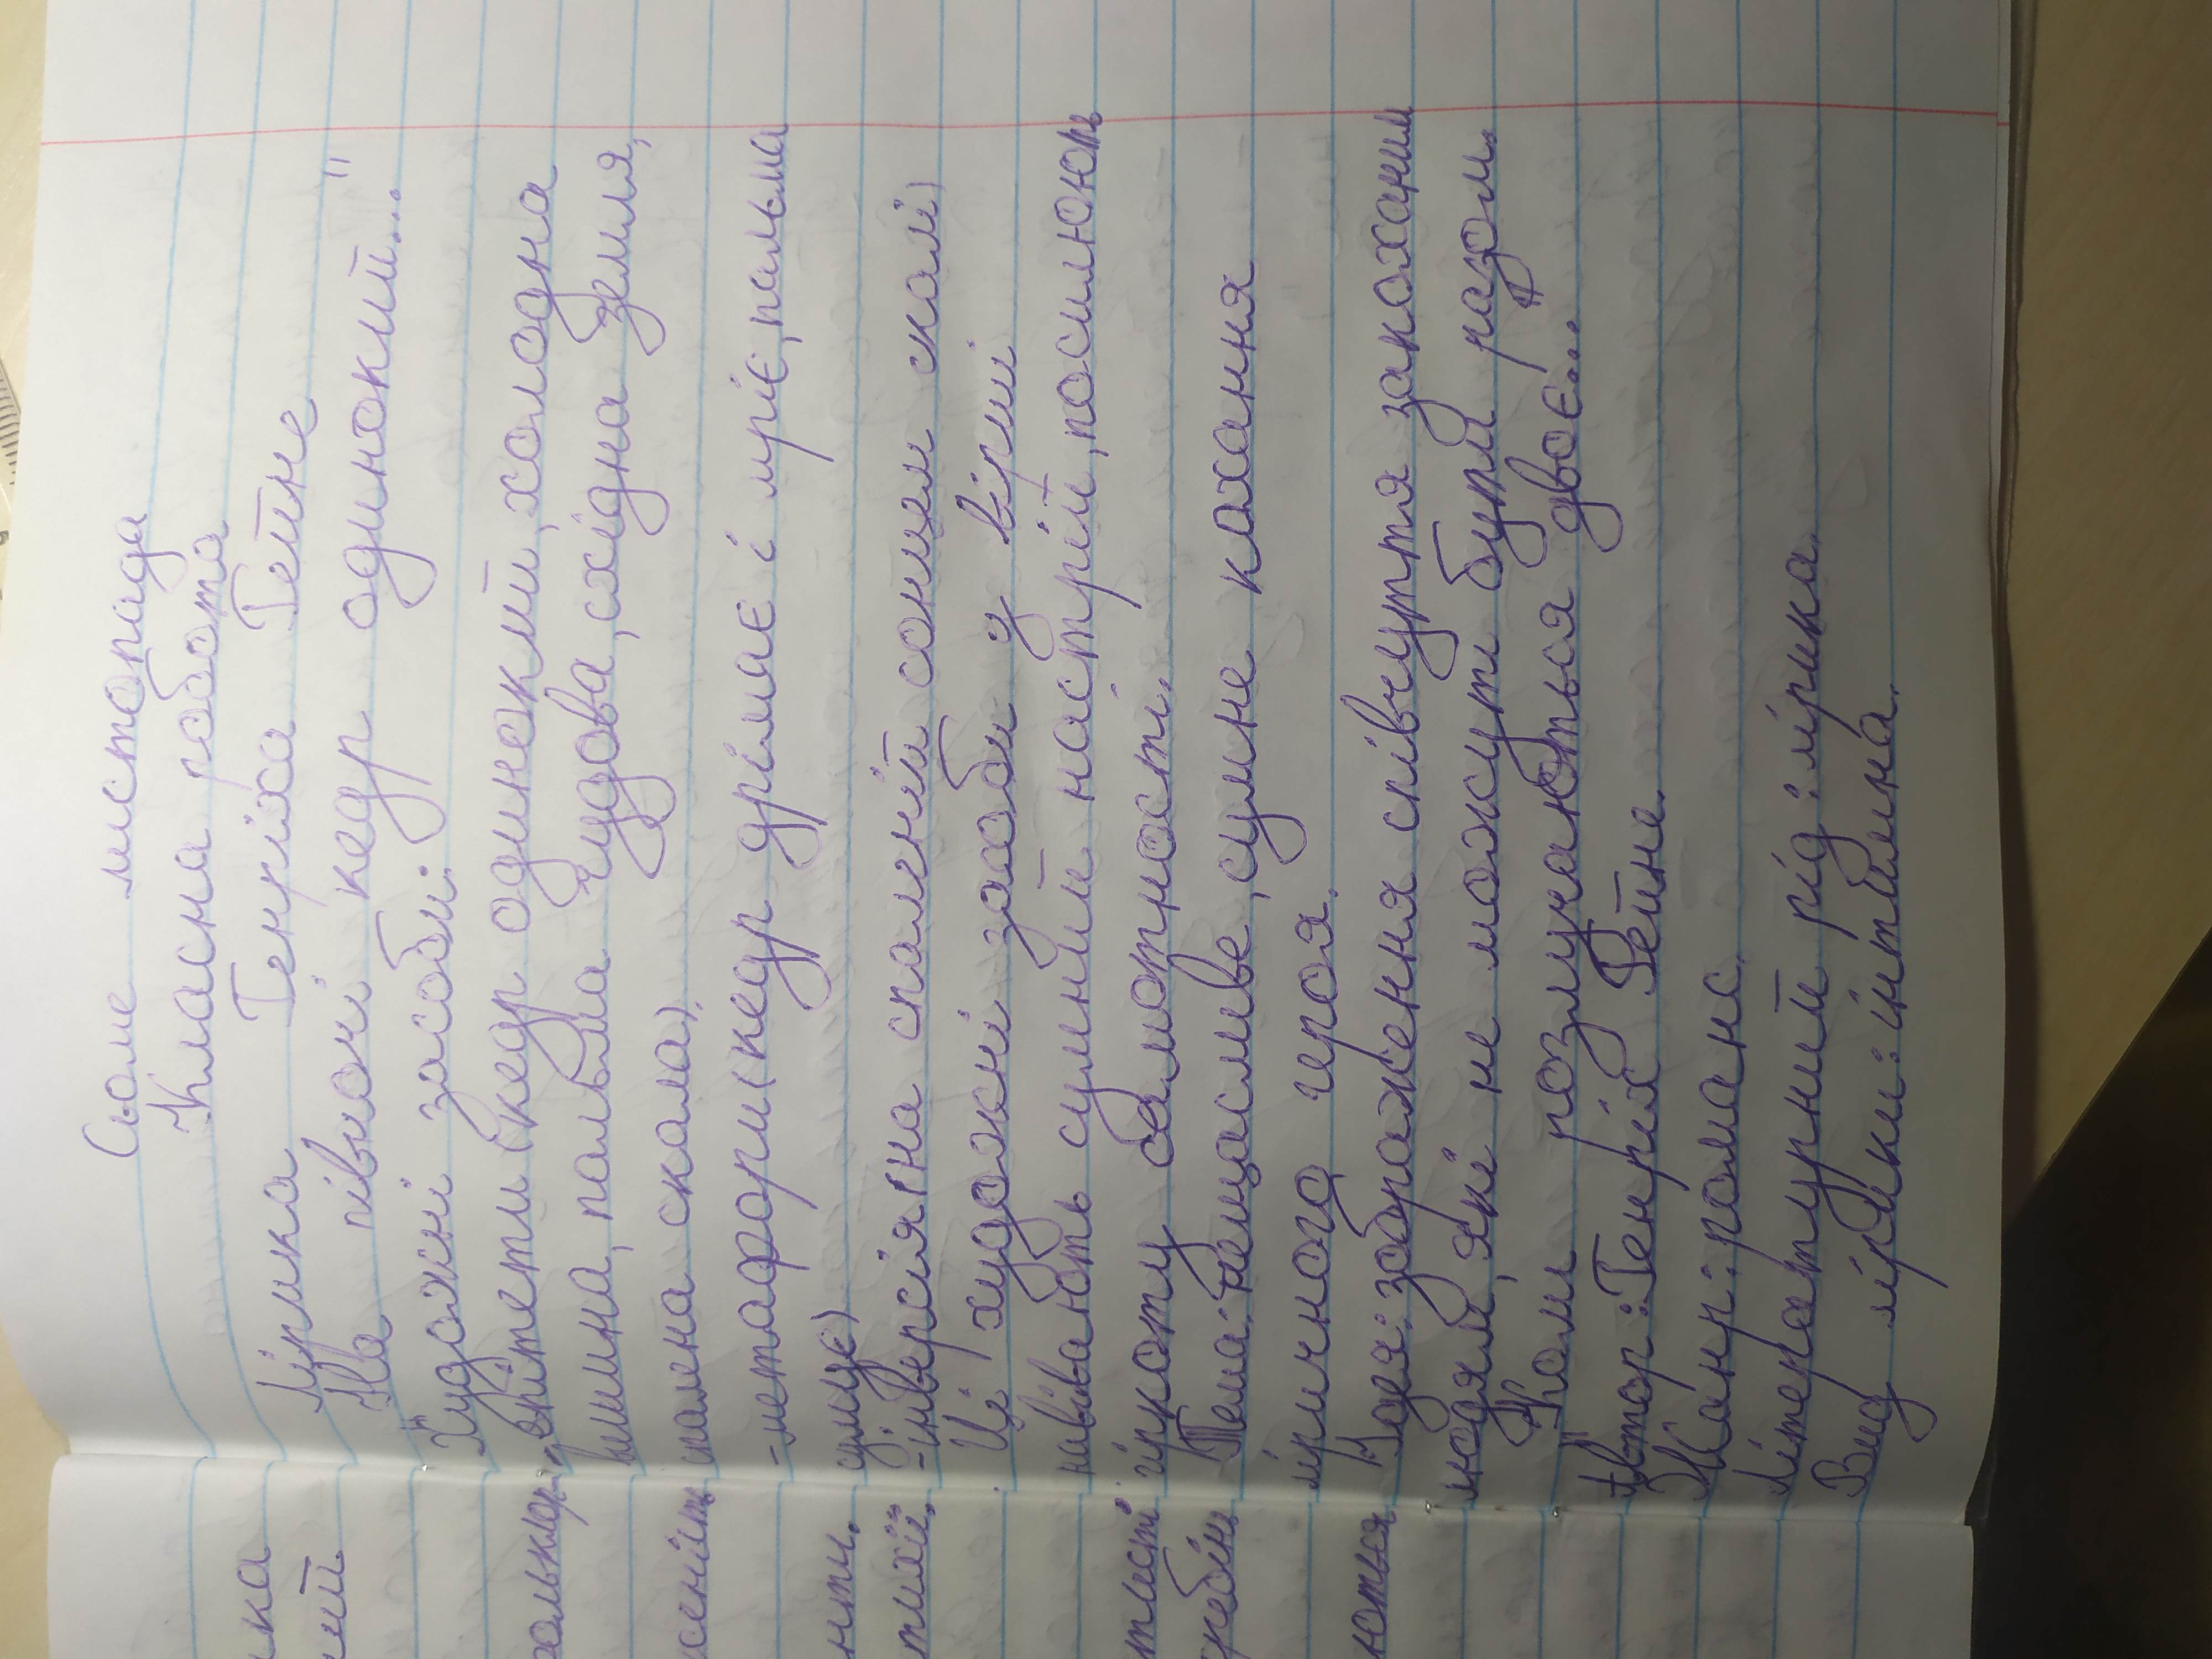 Сьоме листопада
Класна робота
Лірика Генріха Гейне
"На півночі кедр одинокий..."
Художні засоби:
-епітети (кедр одинокий, холодна
вишина, пальма чудова, східна земля,
спалена скала).
-метафори (кедр дрімає і мріє, пальма
сумує)
-інверсія (на спаленій сонцем скалі)
Ці художні засоби у вірші
навівають сумний настрій, посилюють
гіркоту самотності.
Тема: нещасливе, сумне кохання
ліричного героя.
Ідея: зображення співчуття закоханим
людям, які не можуть бути разом.
"Коли розлучаються двоє...
Автор: Генріх Гейне.
Жанр: романс.
Літературний рід: лірика.
Вид лірики: інтимна.
ка
ий
сеніть
нти.
тихії.
тисті
ються